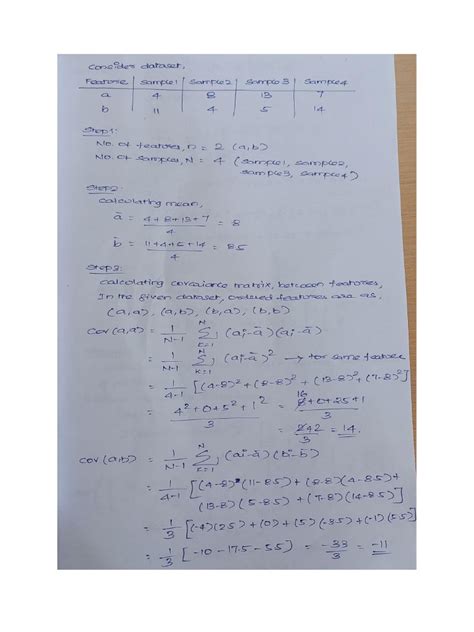 Consider dataset,
Feature | Sample 1 | Sample 2 | Sample 3 | Sample 4
a 4 8 13 7
b 11 4 5 14
Step 1:
No. of features, n = 2 (a,b)
No. of samples, N = 4 (Sample 1, Sample 2,
Sample 3, Sample 4)
Step 2:
Calculating mean,
ā = 4+8+13+7 / 4 = 8
b̄ = 11+4+5+14 / 4 = 8.5
Step 3:
Calculating covariance matrix, between features,
In the given dataset, ordered features are as,
(a,a), (a,b), (b,a), (b,b)
Cov(a,a) = 1/N-1 N Σ k=1 (ai-ā)(ai-ā)
= 1/N-1 N Σ k=1 (ai-ā)² → for same feature
= 1/4-1 [(4-8)² + (8-8)² + (13-8)² + (7-8)²]
= 4²+0+5²+1² / 3 = 16+0+25+1 / 3
= 42/3 = 14.
Cov(a,b) = 1/N-1 N Σ k=1 (ai-ā)(bi-b̄)
= 1/4-1 [(4-8)(11-8.5) + (8-8)(4-8.5) +
(13-8)(5-8.5) + (7-8)(14-8.5)]
= 1/3 [(-4)(2.5) + (0) + (5)(-3.5) + (-1)(5.5)]
= 1/3 [-10 -17.5 -5.5] = -33/3 = -11